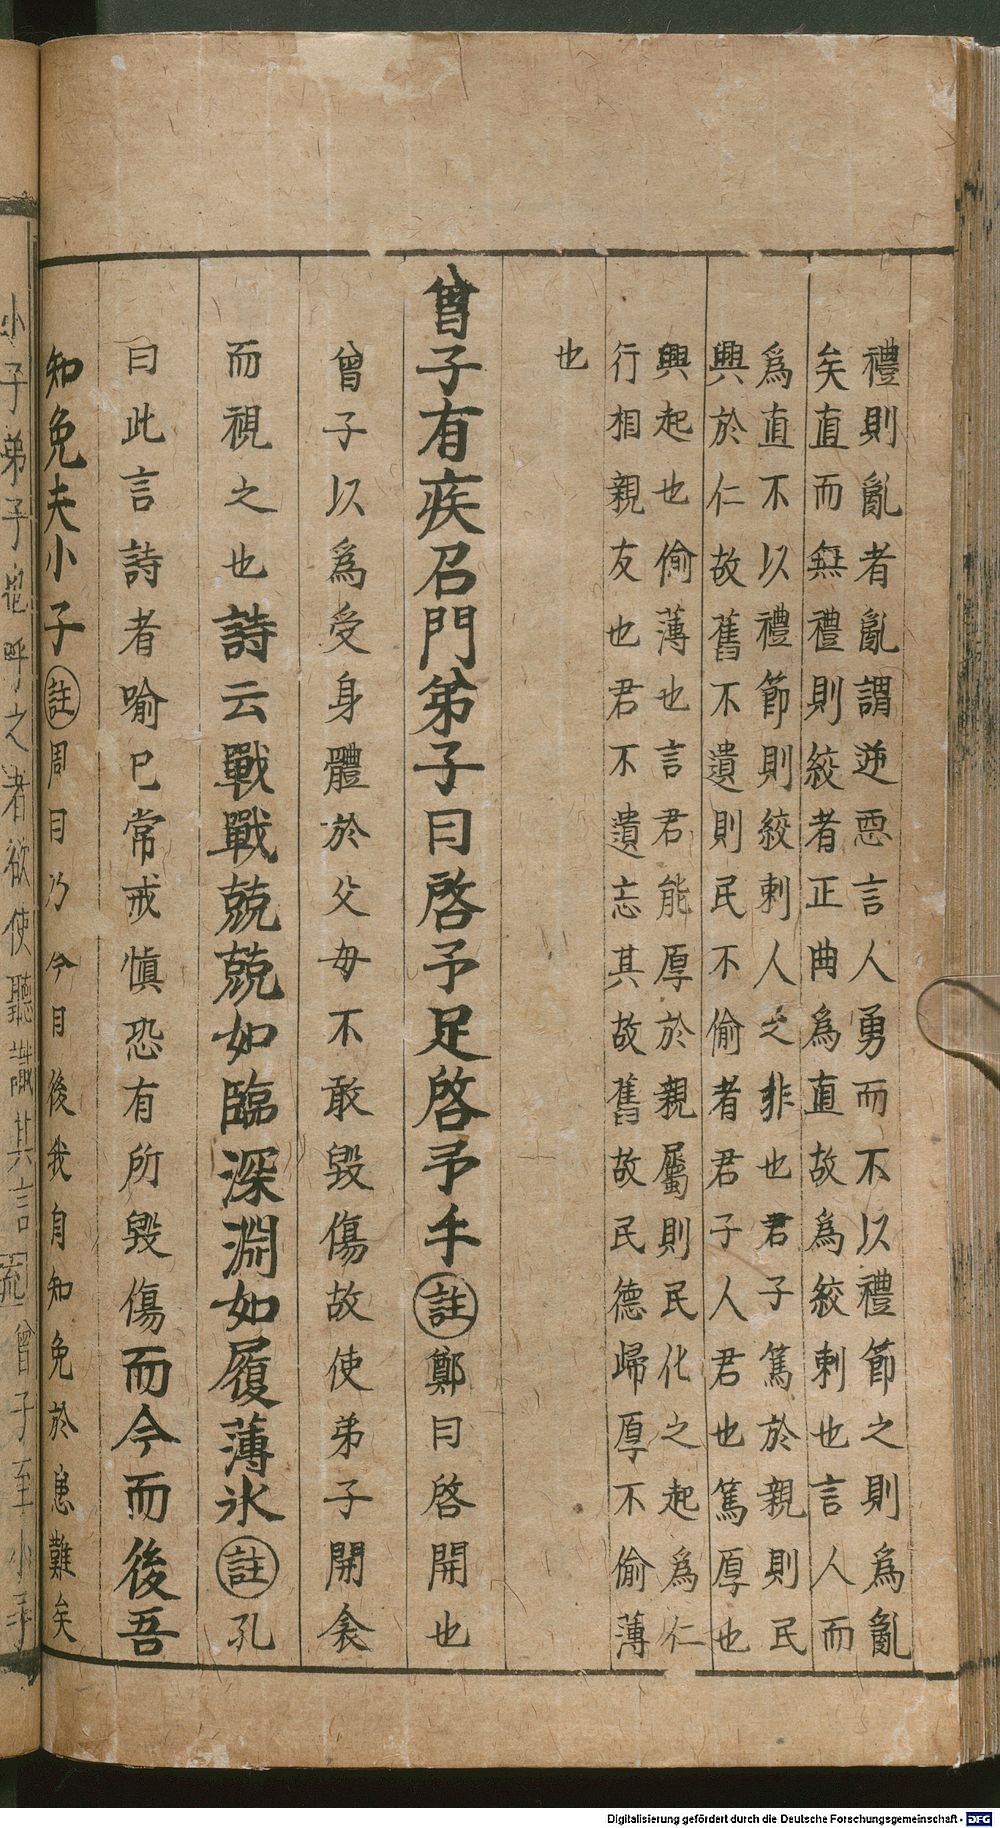 禮則亂者亂謂逆惡言人勇而不以禮節之則爲亂
矣直而無禮則絞者正曲爲直故爲絞刺也言人而
爲直不以禮節則絞刺人之非也君子篤於親則民
興於仁故舊不遺則民不偷者君子人君也篤厚也
興起也偷薄也言君能厚於親屬則民化之起爲仁
行相親友也君不遺忘其故舊故民德歸厚不偷薄
也
曾子有疾召門弟子曰啓予足啓予手註鄭曰啓開也
曾子以爲受身體於父母不敢毀傷故使弟子開衾
而視之也詩云戰戰兢兢如臨深淵如履薄氷註孔
曰此言詩者喻已常戒慎恐有所毀傷而今而後吾
知免夫小子註周曰乃今日後我自知免於患難矣
小子弟子也呼之者欲使聽識其言疏曾子至小子
Digitalisierung gefördert durch die Deutsche Forschungsgemeinschaft - DFG